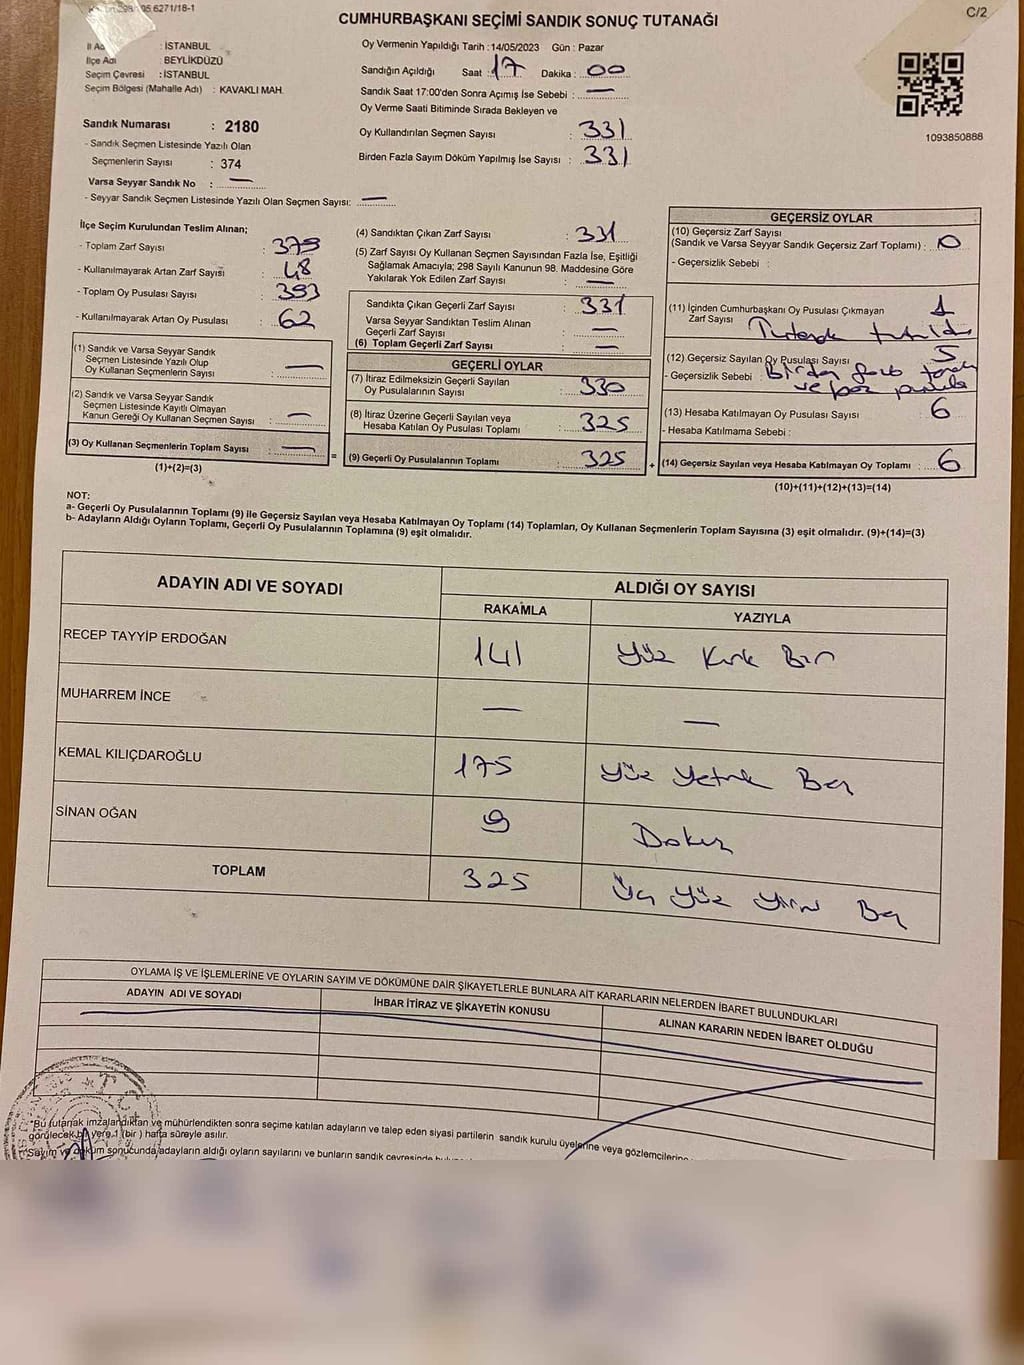 CUMHURBAŞKANI SEÇİMİ SANDIK SONUÇ TUTANAĞI
C/2
6271/18-1
: İSTANBUL
İlçe Adı : BEYLİKDÜZÜ
Seçim Çevresi : İSTANBUL
Seçim Bölgesi (Mahalle Adı) : KAVAKLI MAH.
Sandık Numarası : 2180
- Sandık Seçmen Listesinde Yazılı Olan
Seçmenlerin Sayısı : 374
Varsa Seyyar Sandık No : —
- Seyyar Sandık Seçmen Listesinde Yazılı Olan Seçmen Sayısı: —
Oy Vermenin Yapıldığı Tarih : 14/05/2023 Gün : Pazar
Sandığın Açıldığı Saat : 17 Dakika : 00
Sandık Saat 17:00'den Sonra Açımış İse Sebebi : —
Oy Verme Saati Bitiminde Sırada Bekleyen ve
Oy Kullandırılan Seçmen Sayısı : 331
Birden Fazla Sayım Döküm Yapılmış İse Sayısı : 331
1093850888
İlçe Seçim Kurulundan Teslim Alınan;
- Toplam Zarf Sayısı : 379
- Kullanılmayarak Artan Zarf Sayısı : 48
- Toplam Oy Pusulası Sayısı : 393
- Kullanılmayarak Artan Oy Pusulası : 62
(1) Sandık ve Varsa Seyyar Sandık
Seçmen Listesinde Yazılı Olup
Oy Kullanan Seçmenlerin Sayısı : —
(2) Sandık ve Varsa Seyyar Sandık
Seçmen Listesinde Kayıtlı Olmayan
Kanun Gereği Oy Kullanan Seçmen Sayısı : —
(3) Oy Kullanan Seçmenlerin Toplam Sayısı : — =
(1)+(2)=(3)
(4) Sandıktan Çıkan Zarf Sayısı : 331
(5) Zarf Sayısı Oy Kullanan Seçmen Sayısından Fazla İse, Eşitliği
Sağlamak Amacıyla; 298 Sayılı Kanunun 98. Maddesine Göre
Yakılarak Yok Edilen Zarf Sayısı : —
Sandıkta Çıkan Geçerli Zarf Sayısı : 331
Varsa Seyyar Sandıktan Teslim Alınan
Geçerli Zarf Sayısı : —
(6) Toplam Geçerli Zarf Sayısı : —
GEÇERLİ OYLAR
(7) İtiraz Edilmeksizin Geçerli Sayılan
Oy Pusulalarının Sayısı : 330
(8) İtiraz Üzerine Geçerli Sayılan veya
Hesaba Katılan Oy Pusulası Toplamı : 325
(9) Geçerli Oy Pusulalarının Toplamı : 325 +
GEÇERSİZ OYLAR
(10) Geçersiz Zarf Sayısı
(Sandık ve Varsa Seyyar Sandık Geçersiz Zarf Toplamı) : 0
- Geçersizlik Sebebi :
(11) İçinden Cumhurbaşkanı Oy Pusulası Çıkmayan
Zarf Sayısı 1
tutuldu
(12) Geçersiz Sayılan Oy Pusulası Sayısı 5
- Geçersizlik Sebebi : Birden fazla
ve boş pusula
(13) Hesaba Katılmayan Oy Pusulası Sayısı 6
- Hesaba Katılmama Sebebi :
(14) Geçersiz Sayılan veya Hesaba Katılmayan Oy Toplamı : 6
(10)+(11)+(12)+(13)=(14)
NOT:
a- Geçerli Oy Pusulalarının Toplamı (9) ile Geçersiz Sayılan veya Hesaba Katılmayan Oy Toplamı (14) Toplamları, Oy Kullanan Seçmenlerin Toplam Sayısına (3) eşit olmalıdır. (9)+(14)=(3)
b- Adayların Aldığı Oyların Toplamı, Geçerli Oy Pusulalarının Toplamına (9) eşit olmalıdır.
ADAYIN ADI VE SOYADI ALDIĞI OY SAYISI
RAKAMLA YAZIYLA
RECEP TAYYİP ERDOĞAN 141 Yüz Kırk Bir
MUHARREM İNCE — —
KEMAL KILIÇDAROĞLU 175 Yüz Yetmiş Beş
SİNAN OĞAN 9 Dokuz
TOPLAM 325 Üç Yüz Yirmi Beş
OYLAMA İŞ VE İŞLEMLERİNE VE OYLARIN SAYIM VE DÖKÜMÜNE DAİR ŞİKAYETLERLE BUNLARA AİT KARARLARIN NELERDEN İBARET BULUNDUKLARI
ADAYIN ADI VE SOYADI İHBAR İTİRAZ VE ŞİKAYETİN KONUSU ALINAN KARARIN NEDEN İBARET OLDUĞU
T.C.
*Bu tutanak imzalandıktan ve mühürlendikten sonra seçime katılan adayların ve talep eden siyasi partilerin sandık kurulu üyelerine veya gözlemcilerine
görülecek bir yere 1 (bir ) hafta süreyle asılır.
*Sayım ve döküm sonucunda adayların aldığı oyların sayılarını ve bunların sandık çevresinde